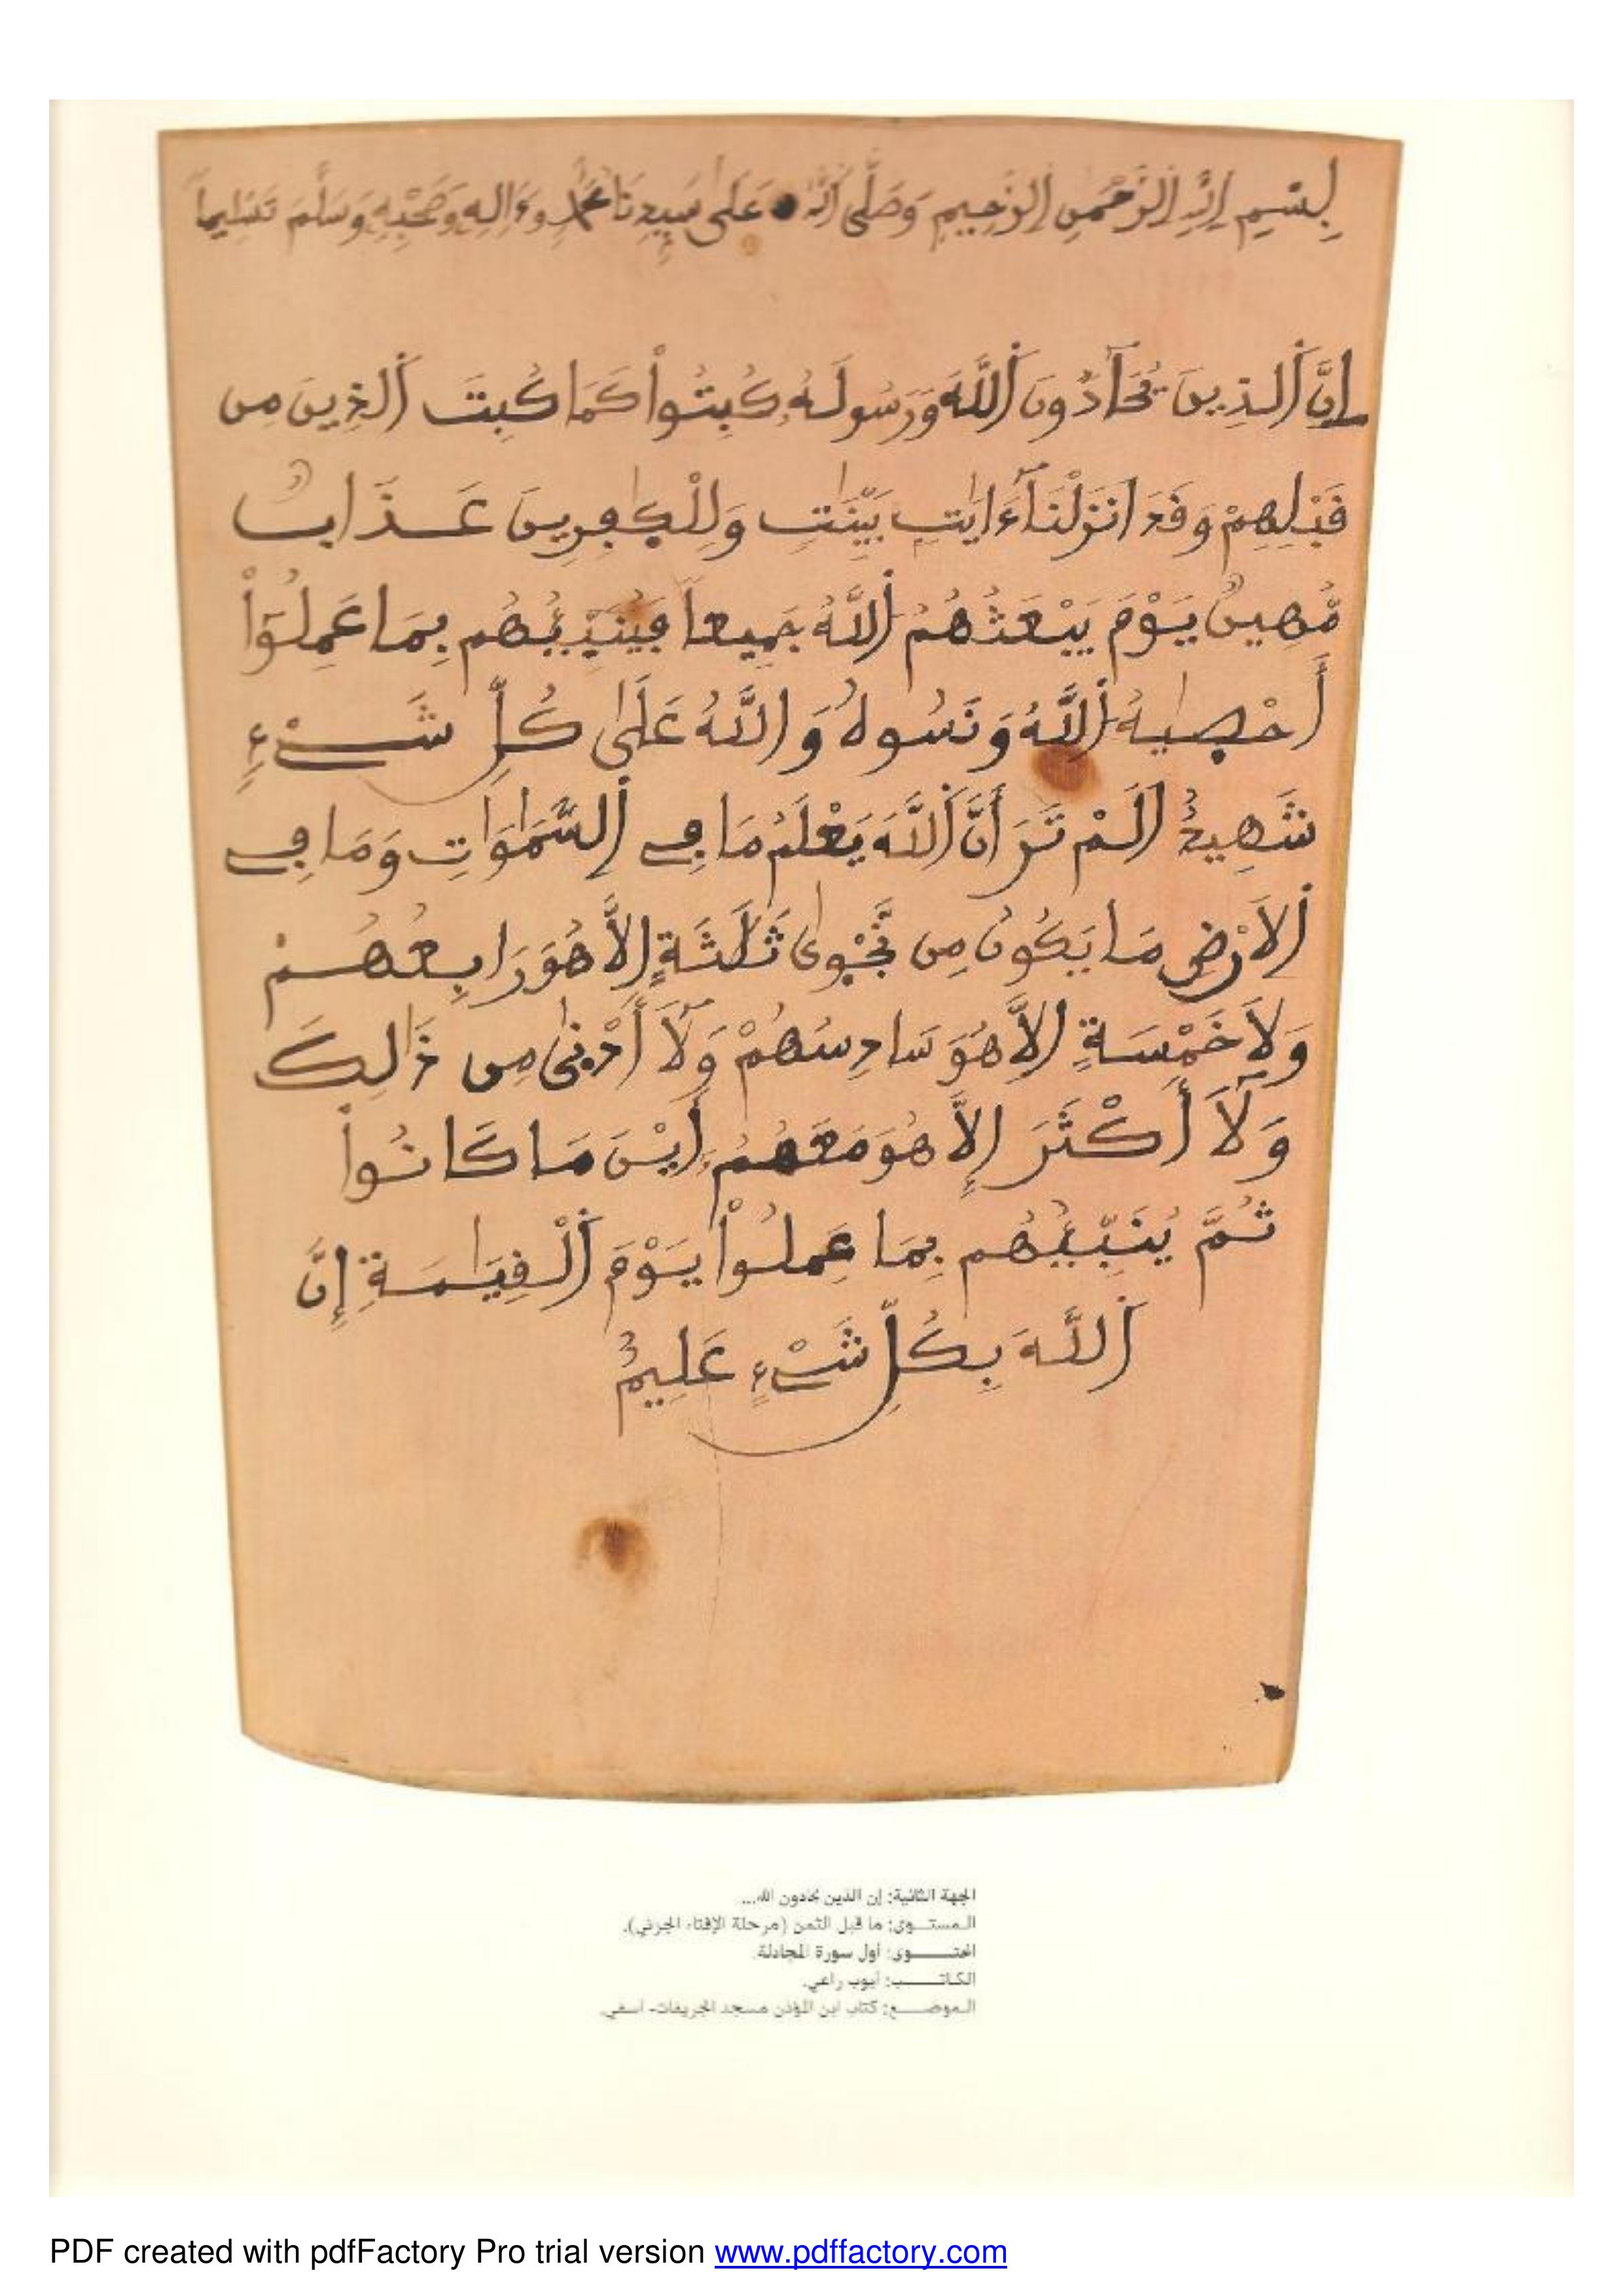 بِسْمِ اِللَّهِ اِلرَّحْمَنِ اِلرَّحِيمِ وَصَلَّى اَللَّهُ عَلَى سَيِّدِنَا مُحَمَّدٍ وَءَالِهِ وَصَحْبِهِ وَسَلَّمَ تَسْلِيماً
إِنَّ اَلذِينَ يُحَآدُّونَ اَللَّهَ وَرَسُولَهُ كُبِتُواْ كَمَا كُبِتَ اَلذِينَ مِن
فَبْلِهِمْ وَفَدَ اَنزَلْنَآ ءَايَٰتِۢ بَيِّنَٰتٖ وَلِلْكٰفِرِينَ عَذَابٞ
مُّهِينٞ يَوْمَ يَبْعَثُهُمُ اَللَّهُ جَمِيعاٗ فَيُنَبِّئُهُم بِمَا عَمِلُوٓاْ
أَحْصٰيهُ اَللَّهُ وَنَسُوهُ وَاللَّهُ عَلَىٰ كُلِّ شَےْءٖ
شَهِيدٌ اَلَمْ تَرَ أَنَّ اَللَّهَ يَعْلَمُ مَا فِے اِلسَّمَٰوَٰتِ وَمَا فِے
اِلَارْضِ مَا يَكُونُ مِن نَّجْوىٰ ثَلَٰثَةٍ اِلاَّ هُوَ رَابِعُهُمْ
وَلاَ خَمْسَةٍ اِلاَّ هُوَ سَادِسُهُمْ وَلَآ أَدْنىٰ مِن ذَٰلِكَ
وَلَآ أَكْثَرَ إِلاَّ هُوَ مَعَهُمُ أَيْنَ مَا كَانُواْ
ثُمَّ يُنَبِّئُهُم بِمَا عَمِلُواْ يَوْمَ اَلْفِيَٰمَةِ إِنَّ
اَللَّهَ بِكُلِّ شَےْءٍ عَلِيمٌ
الجهة الثانية: إن الذين يحادون الله...
المستوى: ما قبل الثمن (مرحلة الإفتاء الجزئي).
المحتوى: أول سورة المجادلة.
الكاتب: أيوب راعي.
الموضع: كتاب ابن المؤذن مسجد الجريفات- آسفي.
PDF created with pdfFactory Pro trial version www.pdffactory.com